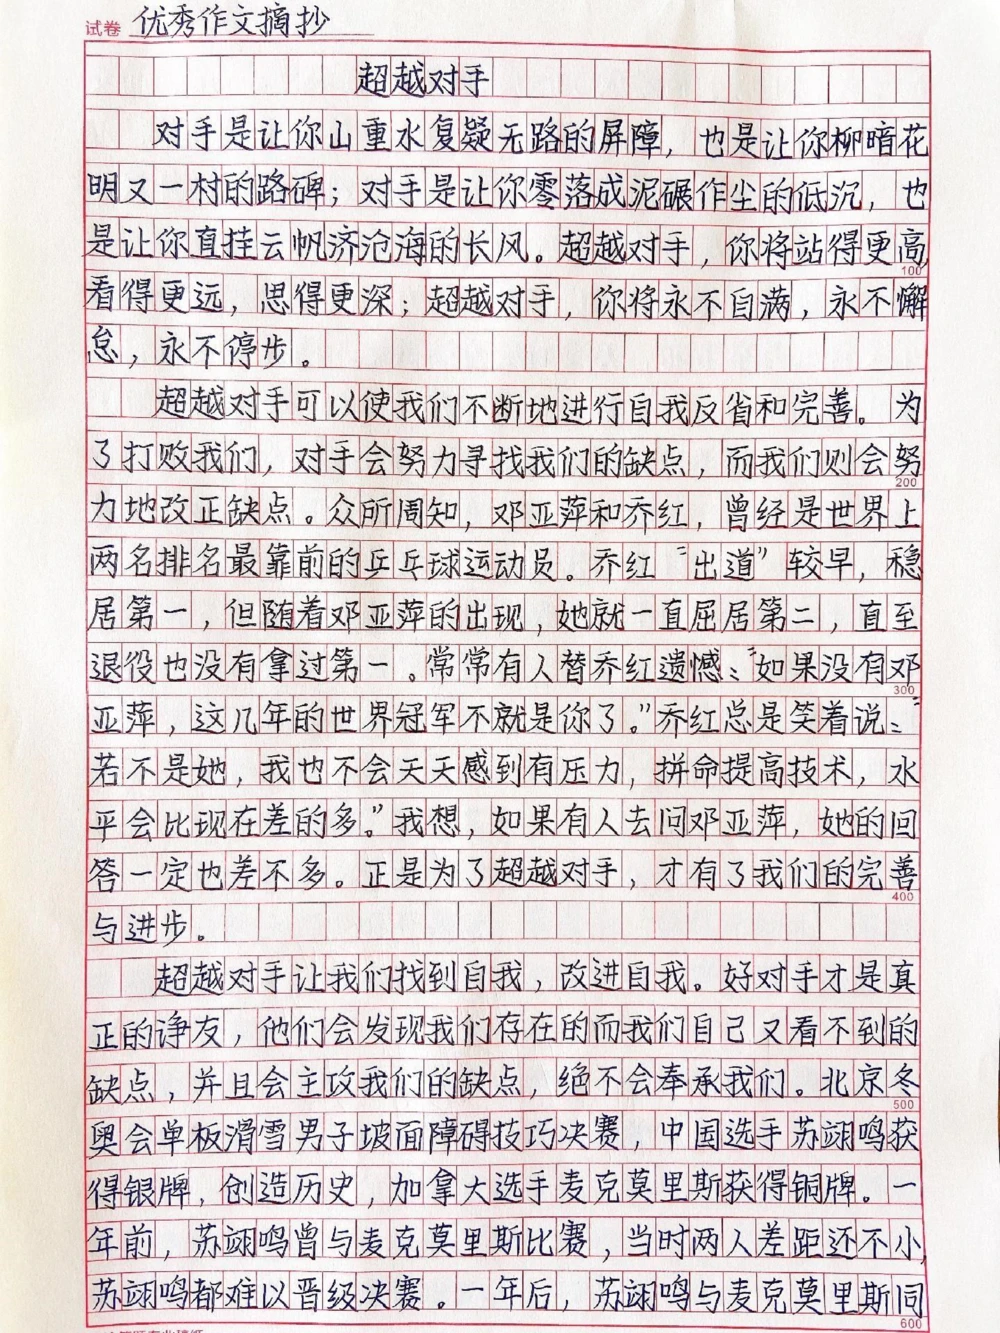 试卷 优秀作文摘抄
超越对手
对手是让你山重水复疑无路的屏障，也是让你柳暗花
明又一村的路碑；对手是让你零落成泥碾作尘的低沉，也
是让你直挂云帆济沧海的长风。超越对手，你将站得更高，
100
看得更远，思得更深；超越对手，你将永不自满，永不懈
怠，永不停步。
超越对手可以使我们不断地进行自我反省和完善。为
了打败我们，对手会努力寻找我们的缺点，而我们则会努
200
力地改正缺点。众所周知，邓亚萍和乔红，曾经是世界上
两名排名最靠前的乒乓球运动员。乔红“出道”较早，稳
居第一，但随着邓亚萍的出现，她就一直屈居第二，直至
退役也没有拿过第一。常常有人替乔红遗憾：“如果没有邓
300
亚萍，这几年的世界冠军不就是你了。”乔红总是笑着说：“
若不是她，我也不会天天感到有压力，拼命提高技术，水
平会比现在差的多。”我想，如果有人去问邓亚萍，她的回
答一定也差不多。正是为了超越对手，才有了我们的完善
400
与进步。
超越对手让我们找到自我，改进自我。好对手才是真
正的诤友，他们会发现我们存在的而我们自己又看不到的
缺点，并且会主攻我们的缺点，绝不会奉承我们。北京冬
500
奥会单板滑雪男子坡面障碍技巧决赛，中国选手苏翊鸣获
得银牌，创造历史，加拿大选手麦克莫里斯获得铜牌。一
年前，苏翊鸣曾与麦克莫里斯比赛，当时两人差距还不小，
苏翊鸣都难以晋级决赛。一年后，苏翊鸣与麦克莫里斯同
600